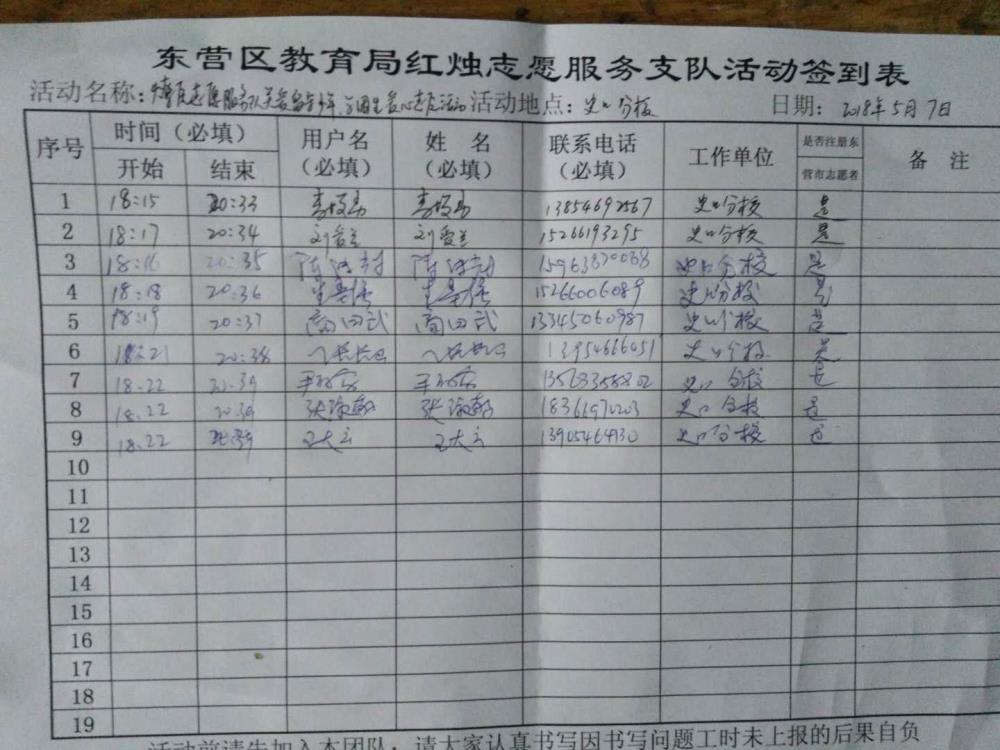 东营区教育局红烛志愿服务支队活动签到表
活动名称： 志愿服务队关爱留守少年、 爱心志愿活动 活动地点：史口分校 日期：2018年5月7日
序号 时间（必填） 用户名（必填） 姓 名（必填） 联系电话（必填） 工作单位 是否注册东营市志愿者 备 注
开始 结束
1 18:15 20:33 13854692567 史口分校 是
2 18:17 20:34 刘爱兰 刘爱兰 15266193295 史口分校 是
3 18:16 20:35 15963870088 史口分校 是
4 18:18 20:36 15266006089 史口分校 是
5 18:19 20:37 商田武 商田武 13345060987 史口分校 是
6 18:21 20:38 13954666051 史口分校 是
7 18.22 20.39 13563358802 史口分校 是
8 18.22 20.39 18361970203 史口分校 是
9 18.22 王大云 王大云 13905464930 史口分校 是
10
11
12
13
14
15
16
17
18
19
活动前请先加入本团队，请大家认真书写因书写问题工时未上报的后果自负